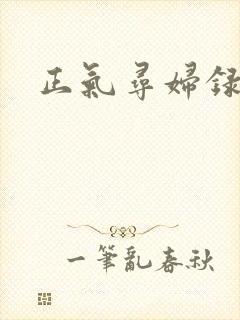 正氣尋婦録
一筆亂春秋